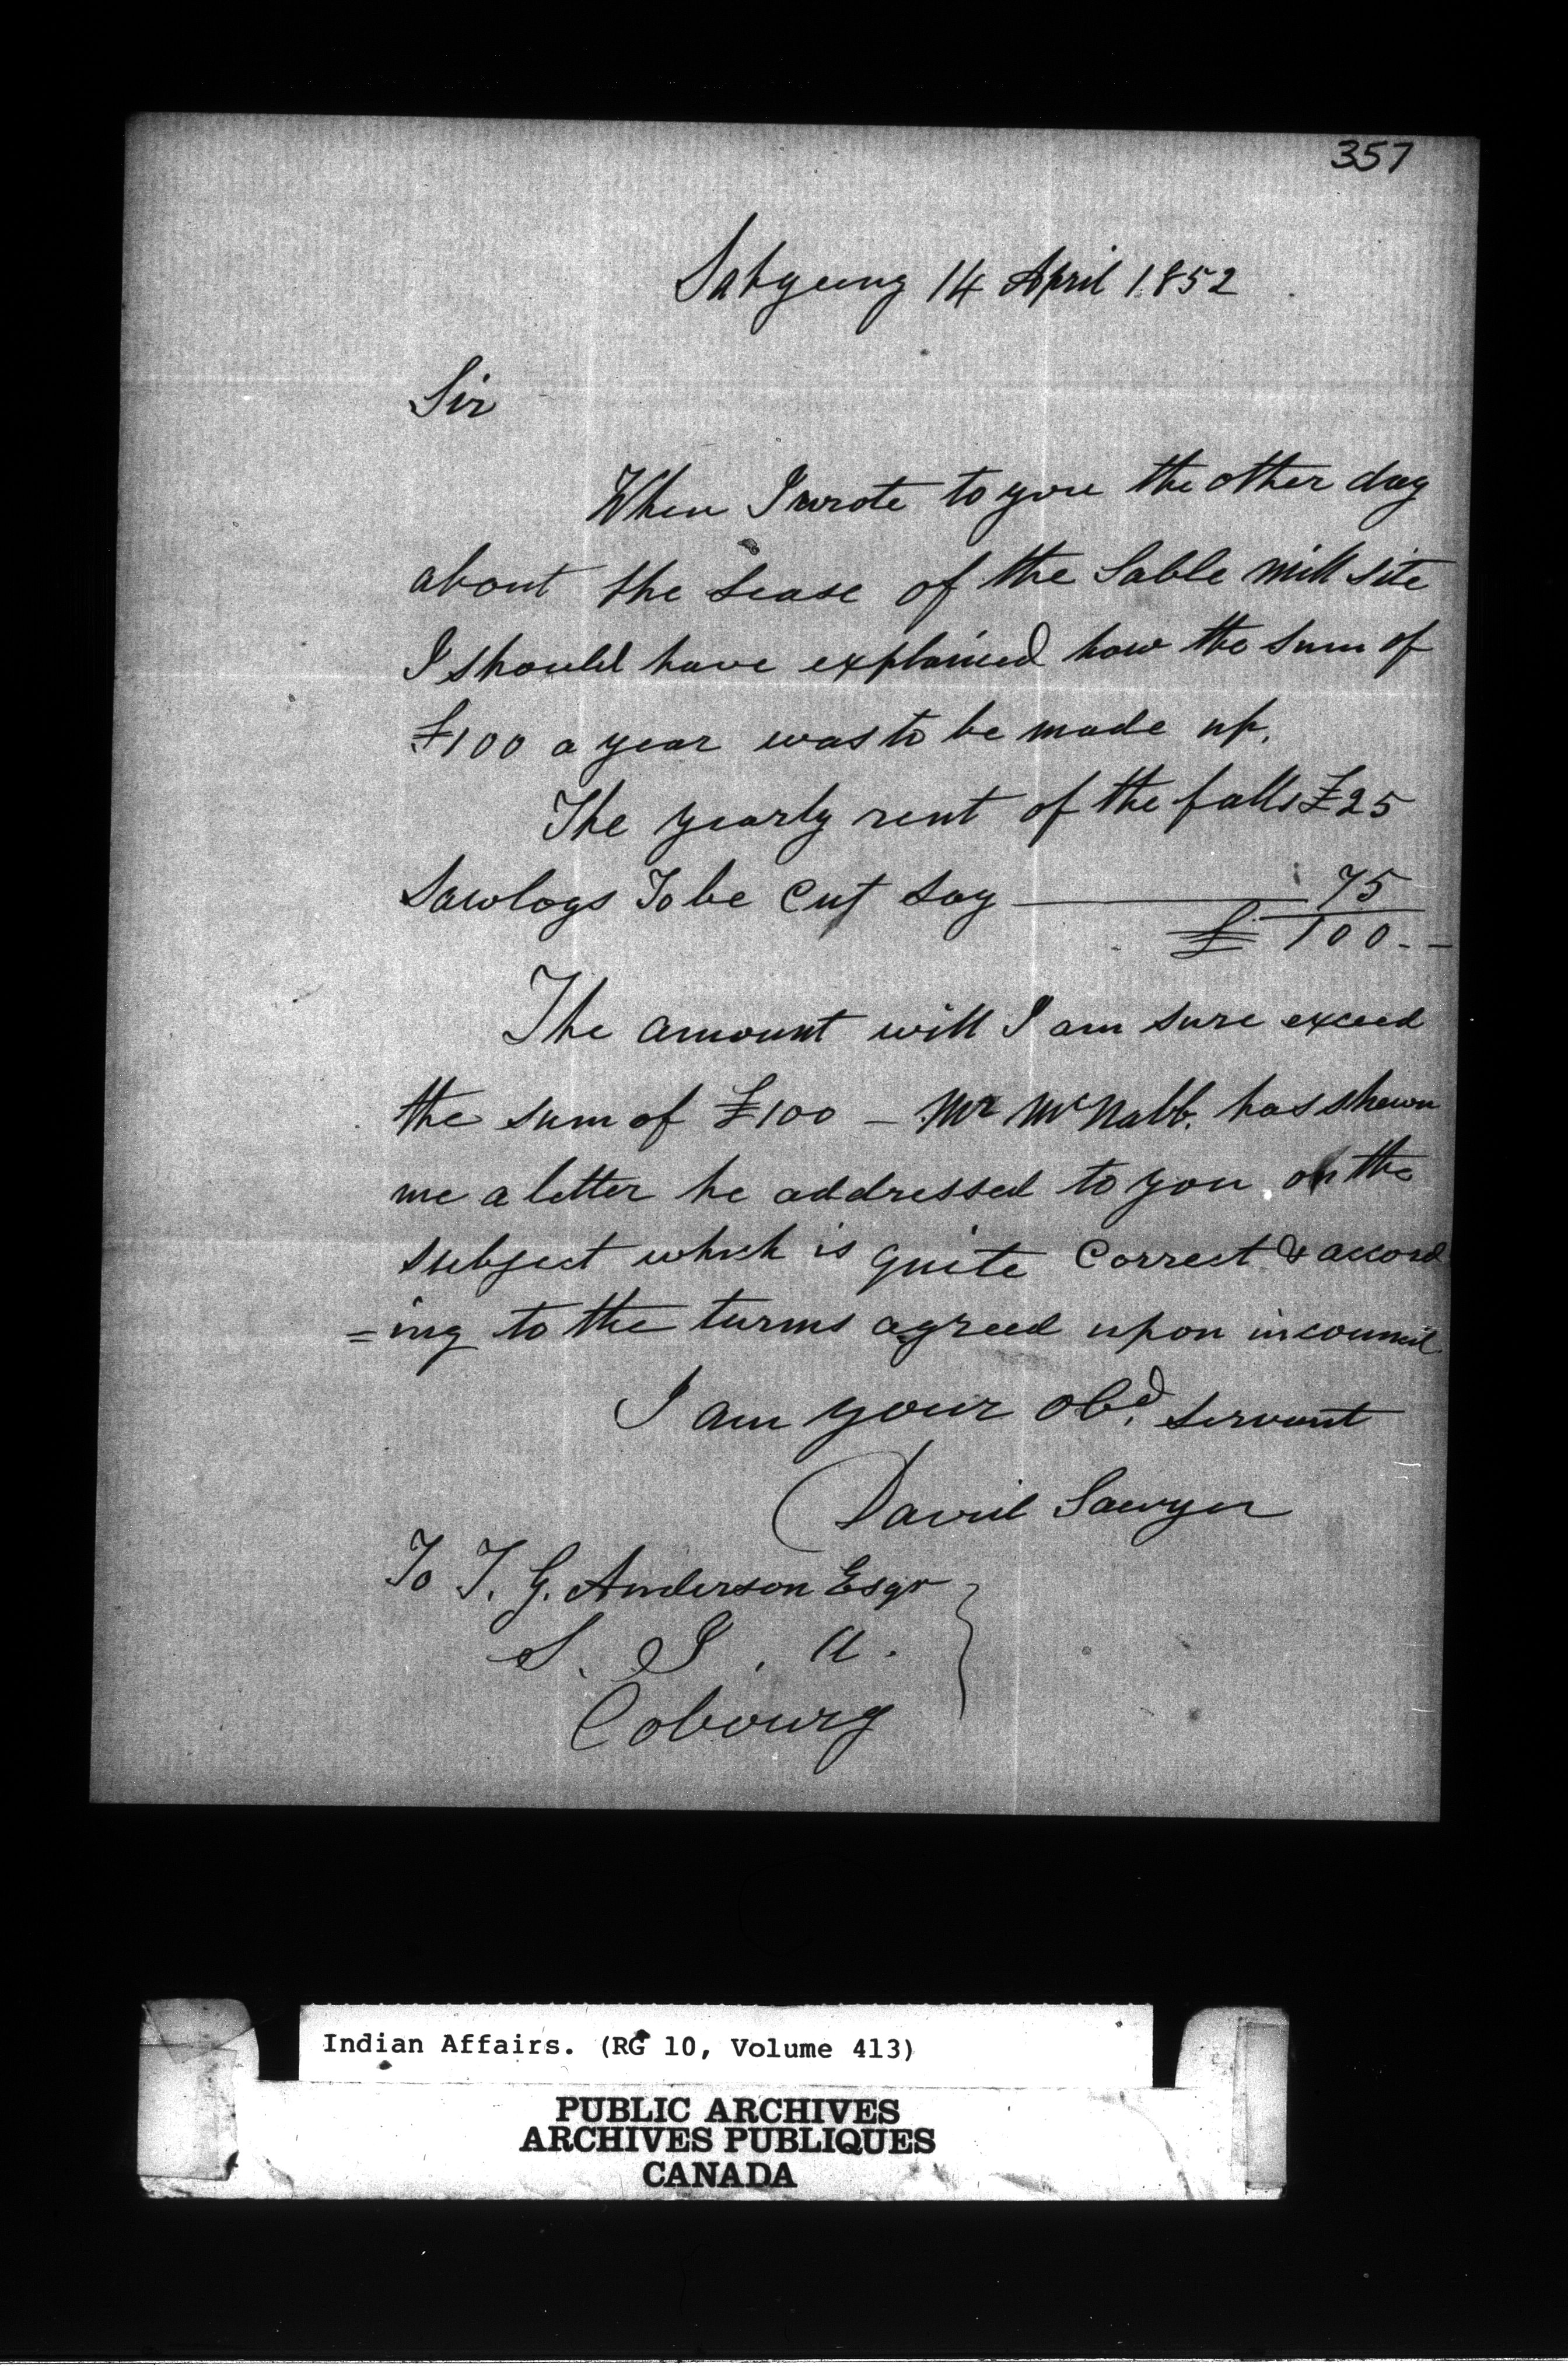 357
Sahgeeng 14 April 1852
Sir
When I wrote to you the other day
about the Lease of the Sable mill site
I should have explained how the sum of
£100 a year was to be made up.
The yearly rent of the falls £25
Sawlogs To be Cut say —— 75
£ 100 - -
The amount will I am sure exceed
the sum of £100 — Mr McNabb. has shewn
me a letter he addressed to you on the
subject which is quite Correct & accord
=ing to the turms agreed upon in council
I am your Obd. servant
David Sawyer
To T. G. Anderson Esqr
S. I. A.
Cobourg
Indian Affairs. (RG 10, Volume 413)
PUBLIC ARCHIVES
ARCHIVES PUBLIQUES
CANADA